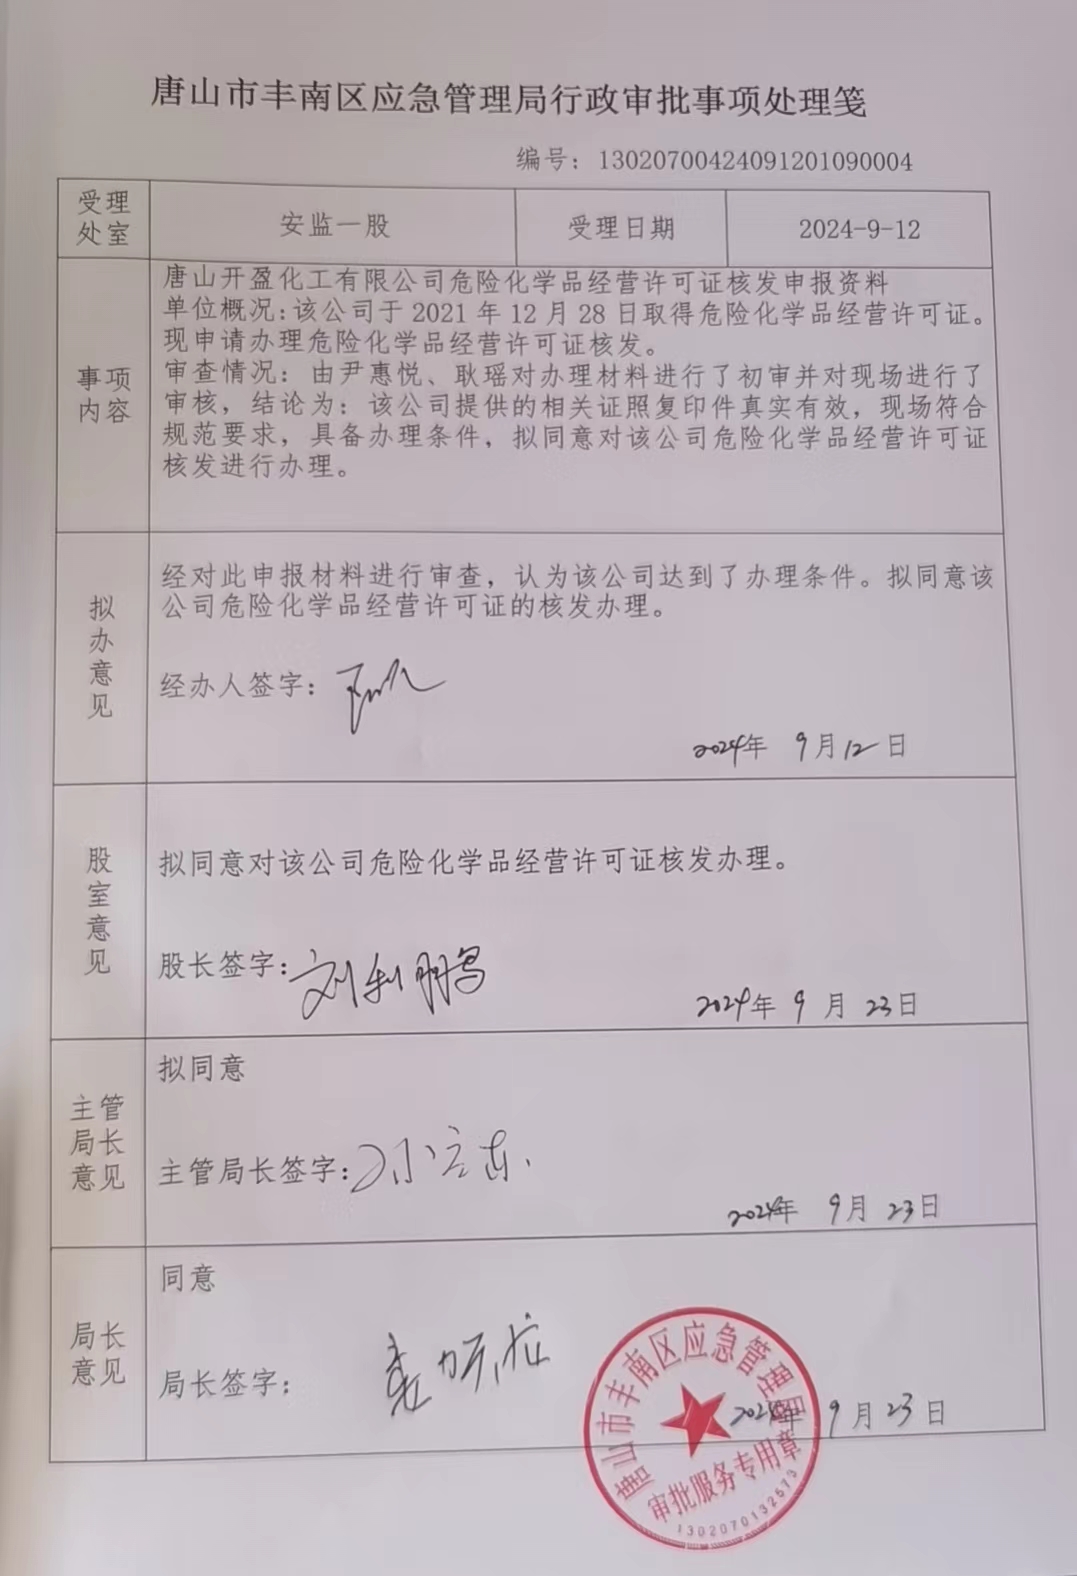 唐山市丰南区应急管理局行政审批事项处理笺
编号：13020700424091201090004
受理
处室
安监一股
受理日期
2024-9-12
事项
内容
唐山开盈化工有限公司危险化学品经营许可证核发申报资料
单位概况：该公司于 2021 年 12 月 28 日取得危险化学品经营许可证。
现申请办理危险化学品经营许可证核发。
审查情况：由尹惠悦、耿瑶对办理材料进行了初审并对现场进行了
审核，结论为：该公司提供的相关证照复印件真实有效，现场符合
规范要求，具备办理条件，拟同意对该公司危险化学品经营许可证
核发进行办理。
拟
办
意
见
经对此申报材料进行审查，认为该公司达到了办理条件。拟同意该
公司危险化学品经营许可证的核发办理。
经办人签字：
2024年 9月12日
股
室
意
见
拟同意对该公司危险化学品经营许可证核发办理。
股长签字：刘利鹏
2024年 9月 23日
主管
局长
意见
拟同意
主管局长签字：
2024年 9月 23日
局长
意见
同意
局长签字：
2024年 9月 23日
唐山市丰南区应急管理局
审批服务专用章
1302070132573